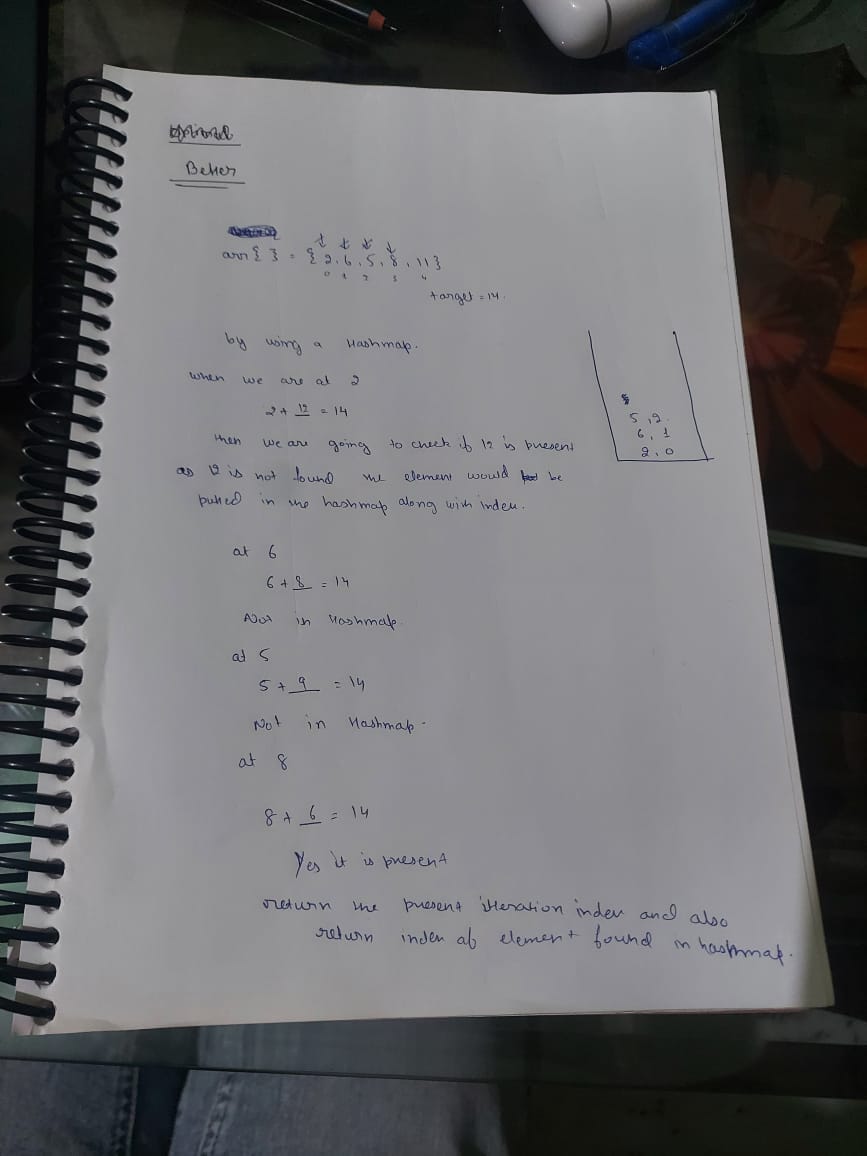 Better
arr { } = { 2, 6, 5, 8, 11 }
0 1 2 3 4
target = 14.
by using a Hashmap.
when we are at 2
2 + 12 = 14
then we are going to check if 12 is present
as 12 is not found the element would be
putted in the hashmap along with index.
5, 2
6, 1
2, 0
at 6
6 + 8 = 14
Not in Hashmap
at 5
5 + 9 = 14
Not in Hashmap.
at 8
8 + 6 = 14
Yes it is present
return the present iteration index and also
return index of element found in hashmap.